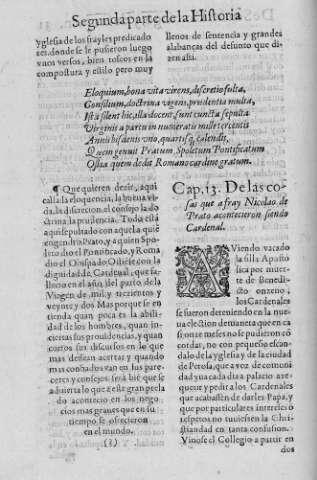 Segunda parte de la Historia
yglesia de los frayles predicado
res, donde se le pusieron luego
vnos versos, bien toscos en la
compostura y estilo pero muy
llenos de sentencia y grandes
alabanças del defunto que di-
zen assi.
Eloquium, bona vita virens, discretio fulta,
Consilium, doctrina vigens, prudentia multa,
Ista silent hic, illa docent, sunt cuncta sepulta
Virginis a partu in numeratis mille trecentis
Annis bisdenis vno, quartisq; calendis,
Quem genuit Pratum, Spoletum Pontificatum
Ostia quem dedit Romano cardine gratum.
¶ Que quieren dezir, aqui
calla la eloquencia, la buena vi-
da, la discrecion, el consejo la do
ctrina la prudencia. Todo està
aqui sepultado con aquel a quiẽ
engendro Prato, y a quien Spo
leto dio el Pontificado, y Roma
dio el Obispado de Ostie con la
dignidad de Cardenal: que fa-
llecio en el año del parto de la
Virgen de mil, y trezientos y
veynte y dos Mas porque se en
tienda quan poca es la abili-
dad de los hombres, quan in-
ciertas sus prouidencias, y quan
cortos sus discursos en lo que
mas dessean acertar y quando
mas confiados van en sus pare-
ceres y consejos serà biẽ que se
aduierta lo que a este gran perla
do acontecio en los nego
cios mas graues que en su
tiempo se ofrecieron
en el mundo.
(?)
Cap. 13. De las co-
sas que a fray Nicolao de
Prato acontecieron siendo
Cardenal.
AViendo vacado
la silla Aposto
lica por muer-
te de Benedi-
cto onzeno,
los Cardenales
se fueron deteniendo en la nue-
ua election demanera que en ca
si onze meses no se pudieron cõ
cordar, no con pequeño escan-
dalo de la yglesia y de la ciudad
de Perosa, que a vez de comuni-
dad yua cada dia a palacio a re-
querir y pedir a los Cardenales
que acabassen de darles Papa, y
que por particulares interesses o
respetos no tuuiessen la Chri-
stiandad en tanta confusion.
Vinose el Collegio a partir en
dos